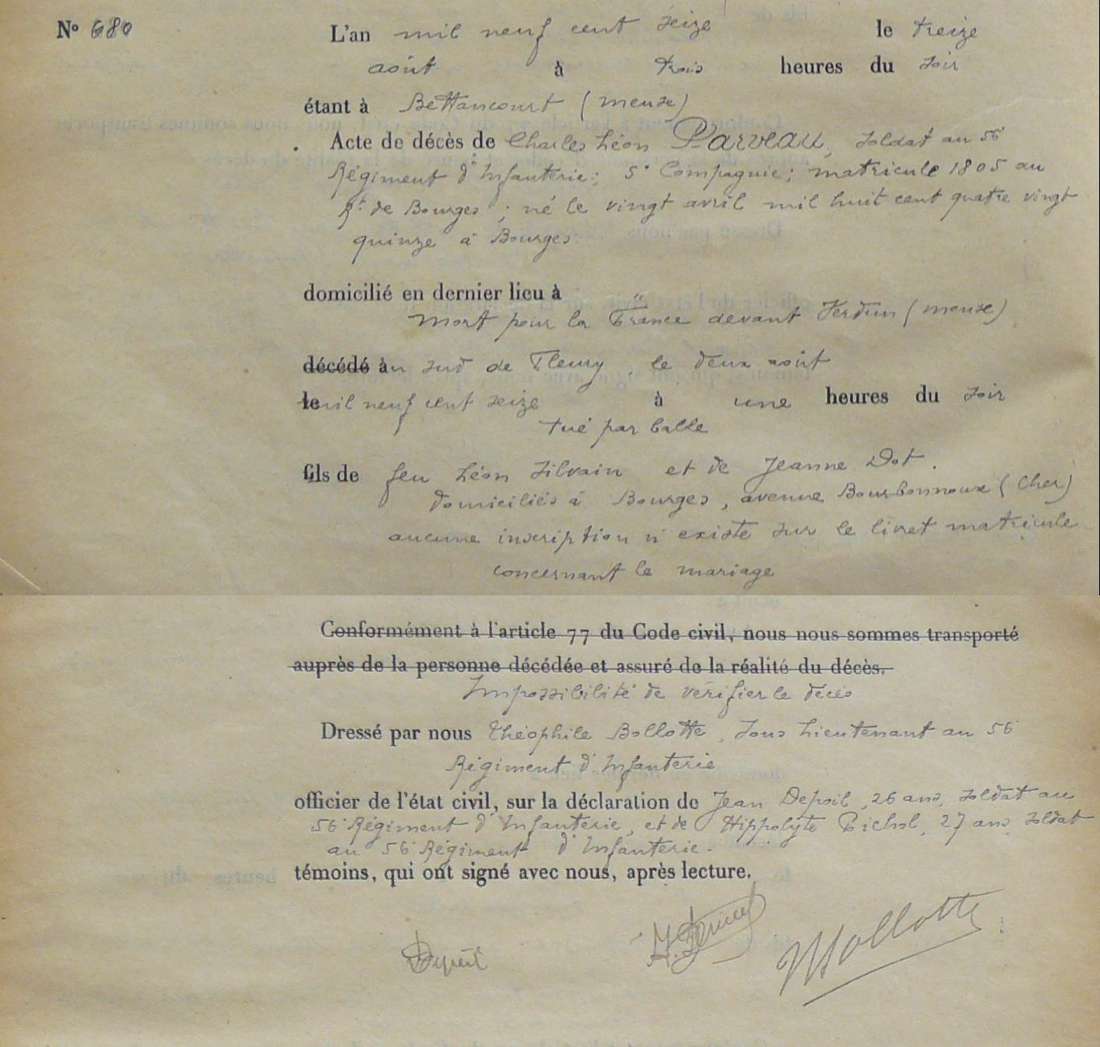 N° 680
L'an mil neuf cent seize le treize
août à trois heures du soir
étant à Bettancourt (meuse)
Acte de décès de Charles Léon Parveau, soldat au 56
Régiment d'Infanterie; 5e Compagnie; matricule 1805 au
Rt de Bourges; né le vingt avril mil huit cent quatre vingt
quinze à Bourges
domicilié en dernier lieu à "
Mort pour la France devant Verdun (meuse)
décédé au sud de Fleury, le deux août
le mil neuf cent seize à une heures du soir
tué par balle
fils de feu Léon Silvain et de Jeanne Dot.
domiciliés à Bourges, avenue Bourbonnoux (Cher)
aucune inscription n'existe sur le livret matricule
concernant le mariage
Conformément à l'article 77 du Code civil, nous nous sommes transporté
auprès de la personne décédée et assuré de la réalité du décès.
Impossibilité de vérifier le décès
Dressé par nous Théophile Bollotte, Sous Lieutenant au 56
Régiment d'Infanterie
officier de l'état civil, sur la déclaration de Jean Depoil, 26 ans, soldat au
56 Régiment d'Infanterie, et de Hippolyte Pichol, 27 ans soldat
au 56 Régiment d'Infanterie.
témoins, qui ont signé avec nous, après lecture.
Depoil Bollotte